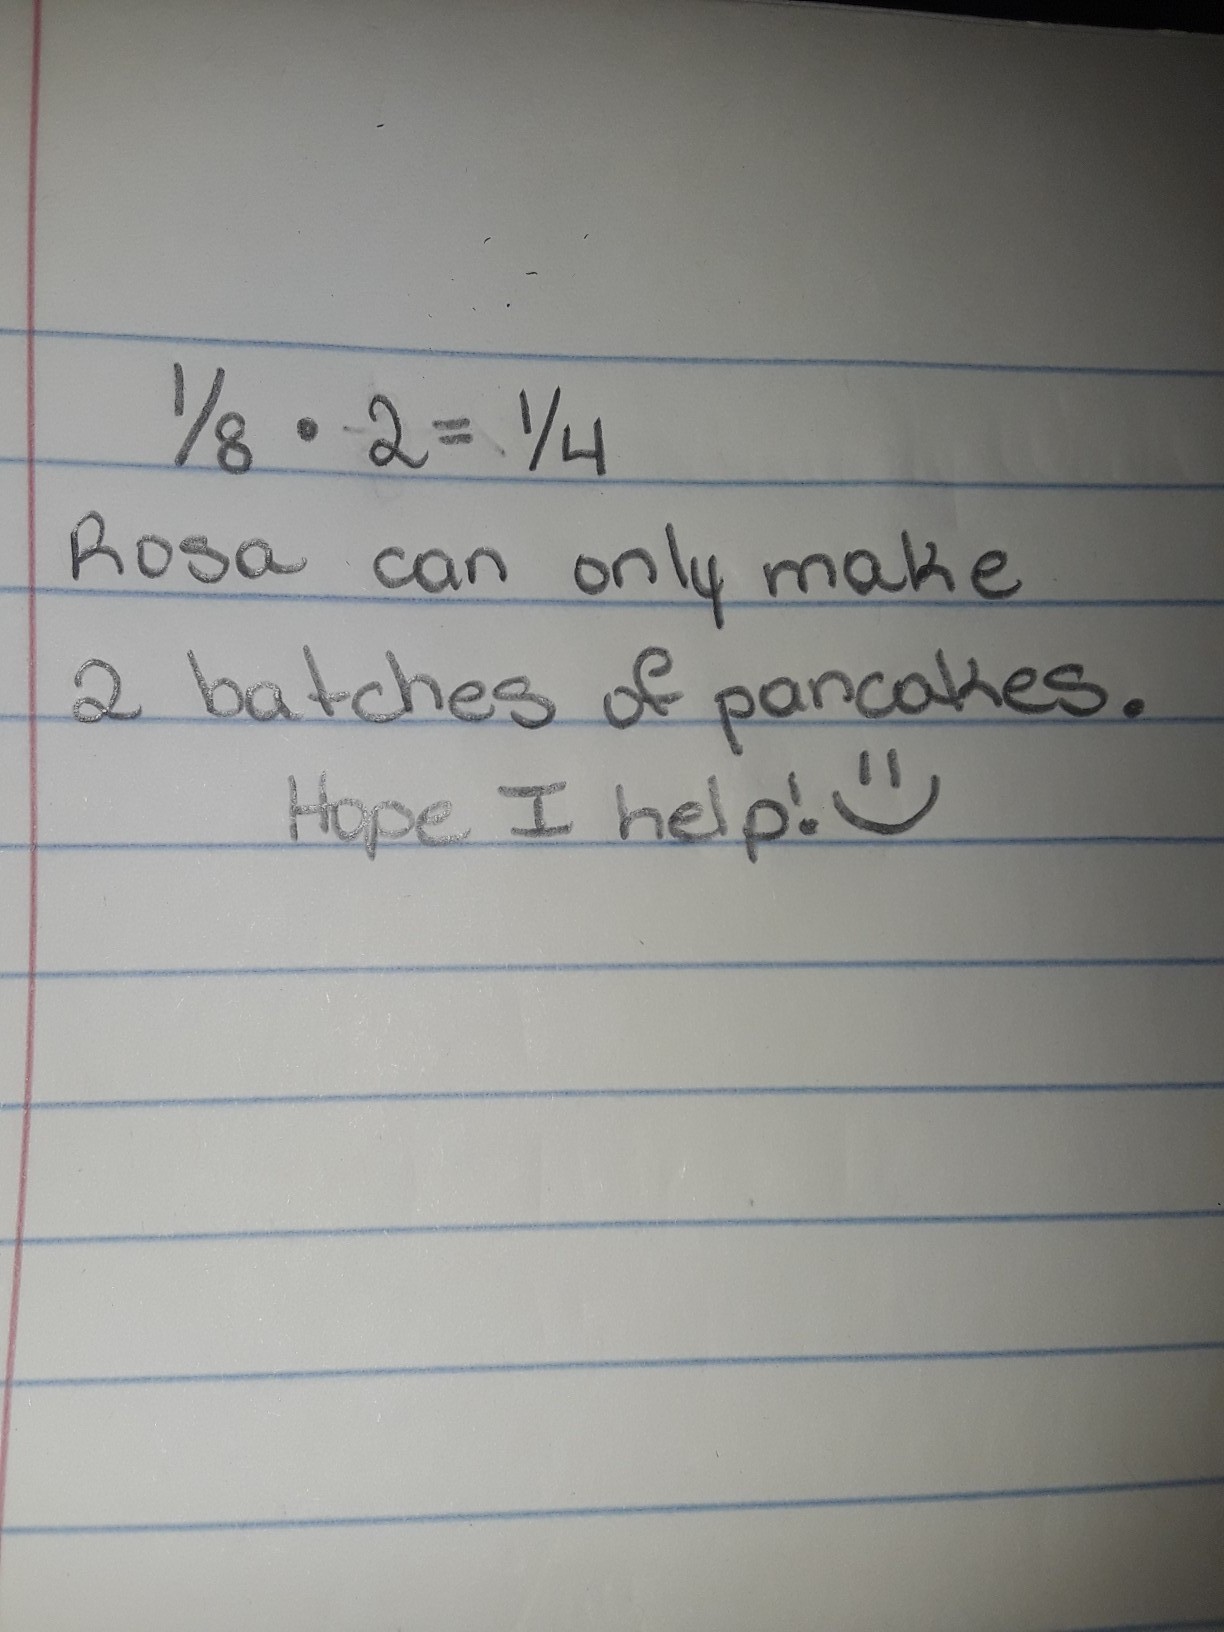 1/8 • 2 = 1/4
Rosa can only make
2 batches of pancakes.
Hope I help! :)